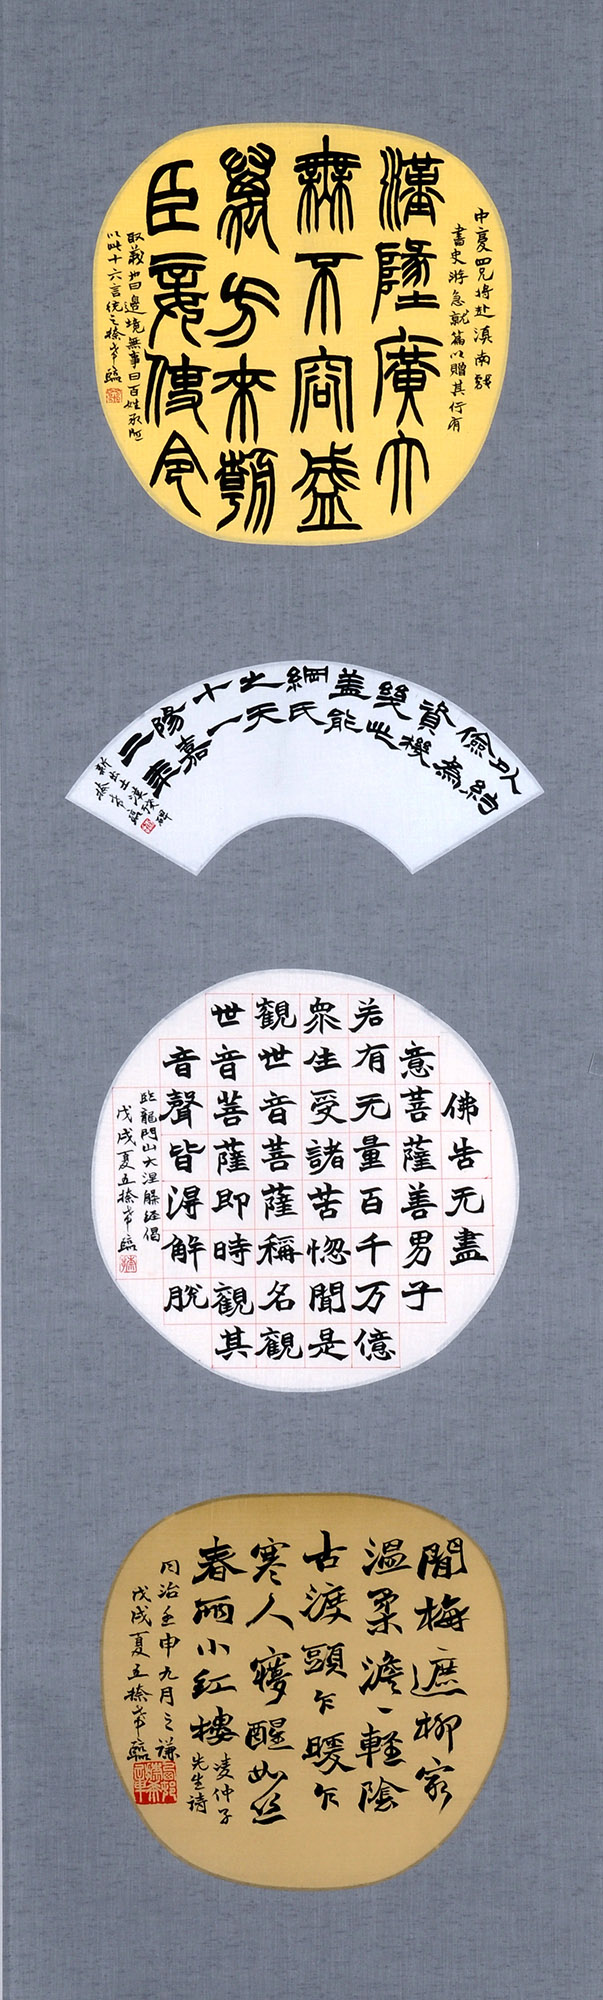 中憂四兄将赴滇南囑
書史游急就篇以贈其行有
漢墬廣大
無不容盛
萬方來朝
臣妾使令
取義皆曰邊境無事曰百姓承
以此十六言統之 希臨
以約
儉為
資機
幾此
盖能
綱氏
之天
十一
陽嘉
二年
新出土漢殘碑
希臨
佛告无盡
意菩薩善男子
若有无量百千万億
衆生受諸苦惱聞是
觀世音菩薩稱名觀
世音菩薩即時觀其
音聲皆得解脫
臨龍門山大涅槃經偈
戊戌夏五 希臨
閒梅遮柳家
温柔澹〻輕陰
古渡頭乍暖乍
寒人寱醒如丝
春雨小红樓 凌仲子
先生詩
同治壬申九月之谦
戊戌夏五 希臨